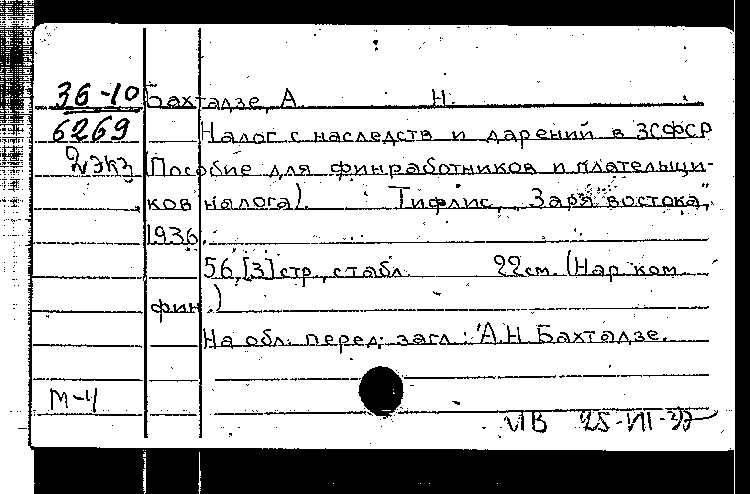 36-10 Бахтадзе, А. Н.
6269 Налог с наследств и дарений в ЗСФСР
2 экз (Пособие для финработников и плательщи-
ков налога). Тифлис, "Заря востока",
1936.
56,[3] стр., с табл. 22 см. (Нар. ком.
фин.)
На обл. перед. загл.: А.Н. Бахтадзе.
М-4
25-VII-37